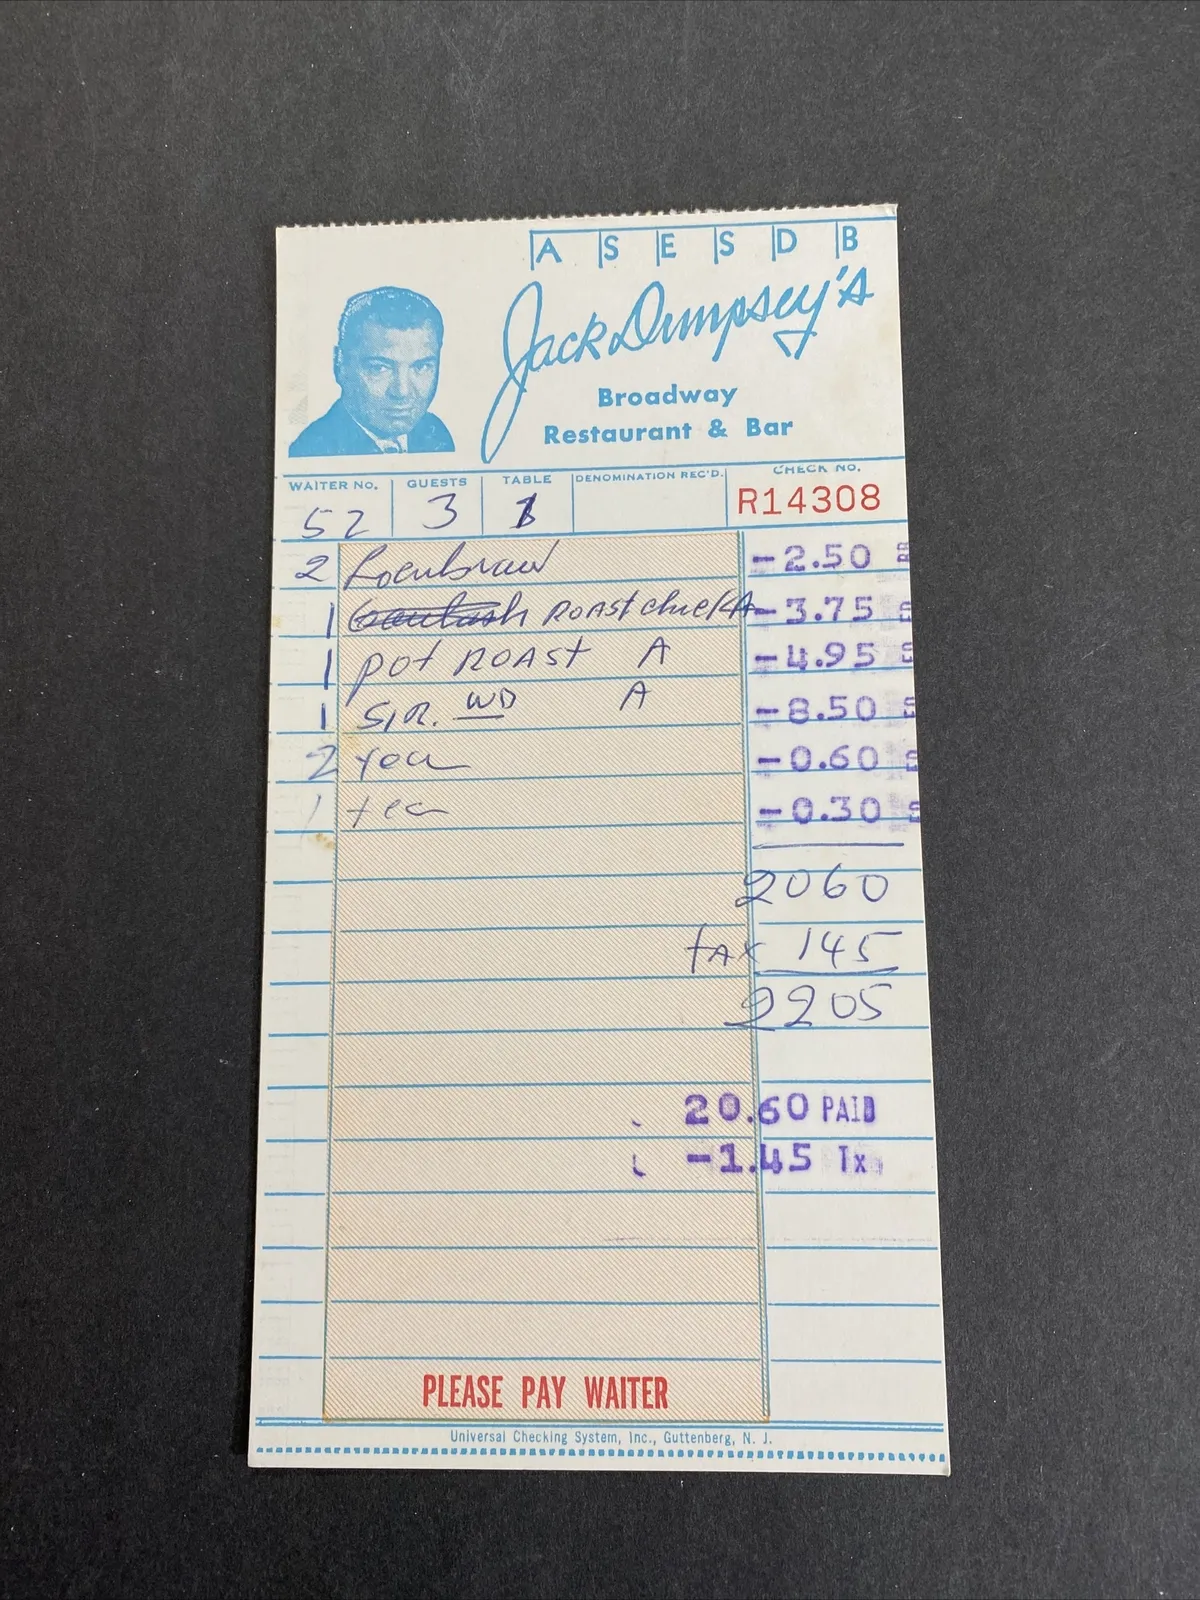 A S E S D B
Jack Dempsey's
Broadway
Restaurant & Bar
WAITER NO. GUESTS TABLE DENOMINATION REC'D. CHECK NO.
52 3 1 R14308
2 -2.50
1 ROAST chick A -3.75
1 POT ROAST A -4.95
1 SIR. WD A -8.50
2 -0.60
1 tea -0.30
2060
TAX 145
2205
20.60 PAID
-1.45 Tx
PLEASE PAY WAITER
Universal Checking System, Inc., Guttenberg, N. J.